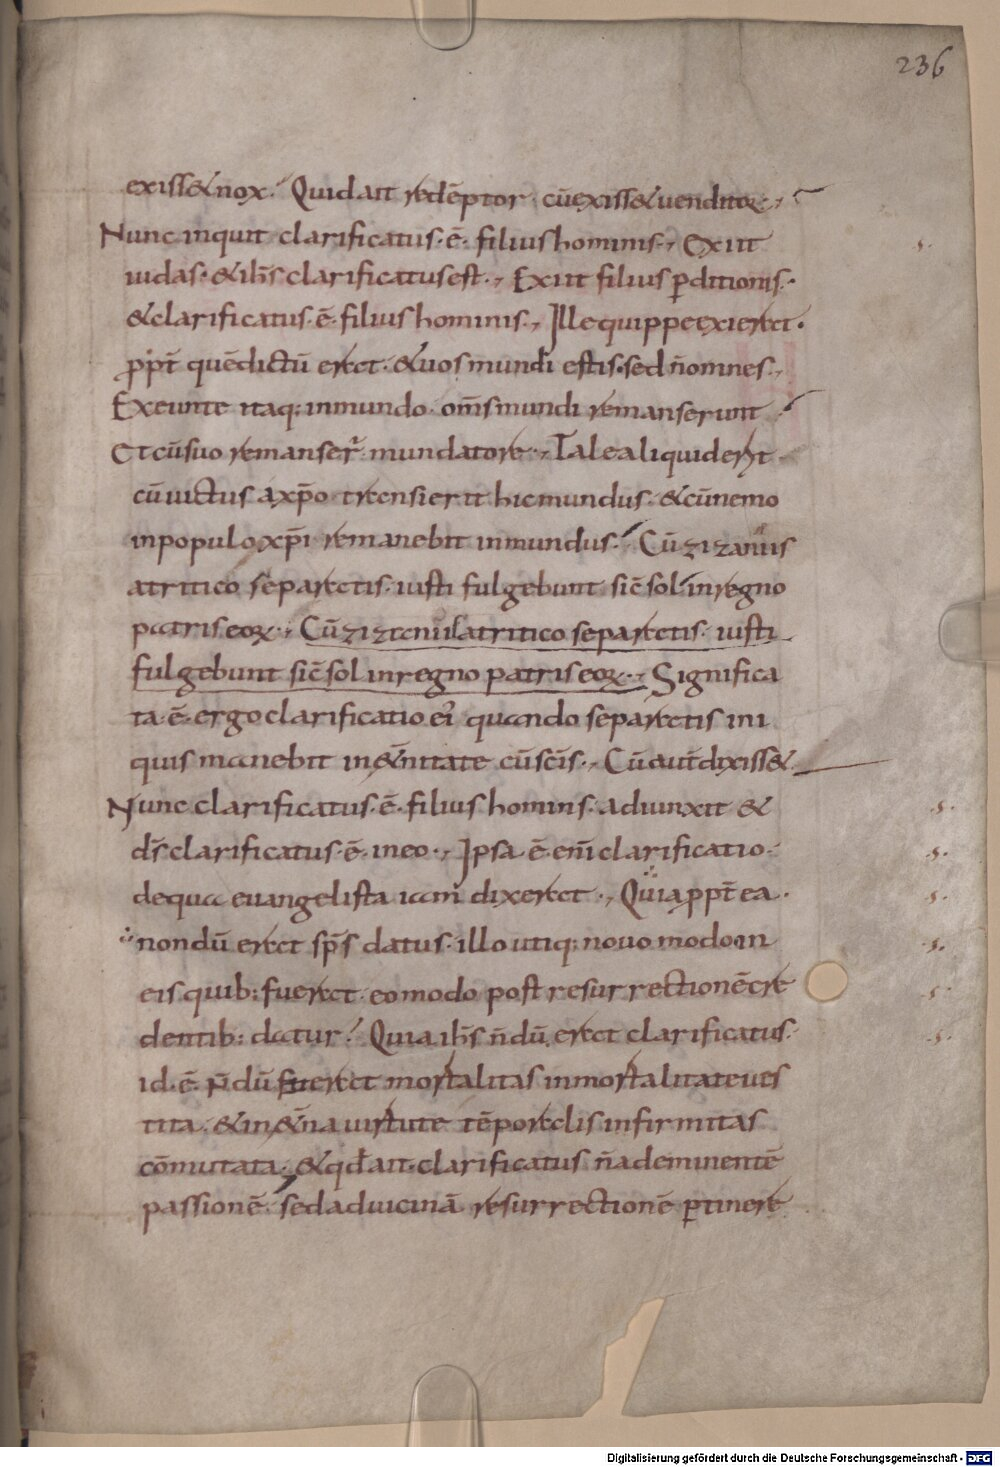 236
exiss&nox. Quid ait redēptor cūexiss&uenditor.,
Nunc inquit clarificatus·ē· filius hominis., Exiit
iudas· &ih̄s clarificatus est., Exiit filius p̄ditionis.
&clarificatus·ē·filius hominis., Ille quippe exierat·
ꝓpt̄ quē dictū erat· &uos mundi estis·sed n̄omnes.,
Exeunte itaq; inmundo· om̄s mundi remanserunt
Et cū suo remanser̄ mundatore., Tale aliquid erit
cū uictus axp̄o transierit hic mundus· &cū nemo
in populo xp̄i remanebit inmundus. Cū zizaniis
a tritico separatis· iusti fulgebunt sic̄ sol in regno
patris eoꝝ., Cū zizaniis a tritico separatis· iusti
fulgebunt sic̄ sol in regno patris eoꝝ., Significa
ta·ē·ergo clarificatio ei quando separatis ini
quis manebit in &̄nitate cū sc̄is., Cū aut̄ dixiss&
Nunc clarificatus·ē·filius hominis· adiunxit &
d̄s clarificatus·ē·in eo., Ipsa·ē·eni̅ clarificatio·
de qua euangelista iam dixerat., Quia ꝓpt̄ ea·
nondū erat sp̄s datus· illo utiq; nouo modo in
eis quib; fuerat· eo modo post resurrectionē cre
dentib; datur. Quia ih̄s n̄dū erat clarificatus·
id·ē· n̄dū fuerat mortalitas inmortalitate ues
tita· &in &̄na uirtute tēporalis infirmitas
cōmutata· &qd̄ait·clarificatus n̄ad eminentē
passionē sed ad uicinā resurrectionē ꝑtinere
.s.
.s.
.s.
.s.
.s.
.s.
.s.
Digitalisierung gefördert durch die Deutsche Forschungsgemeinschaft - DFG